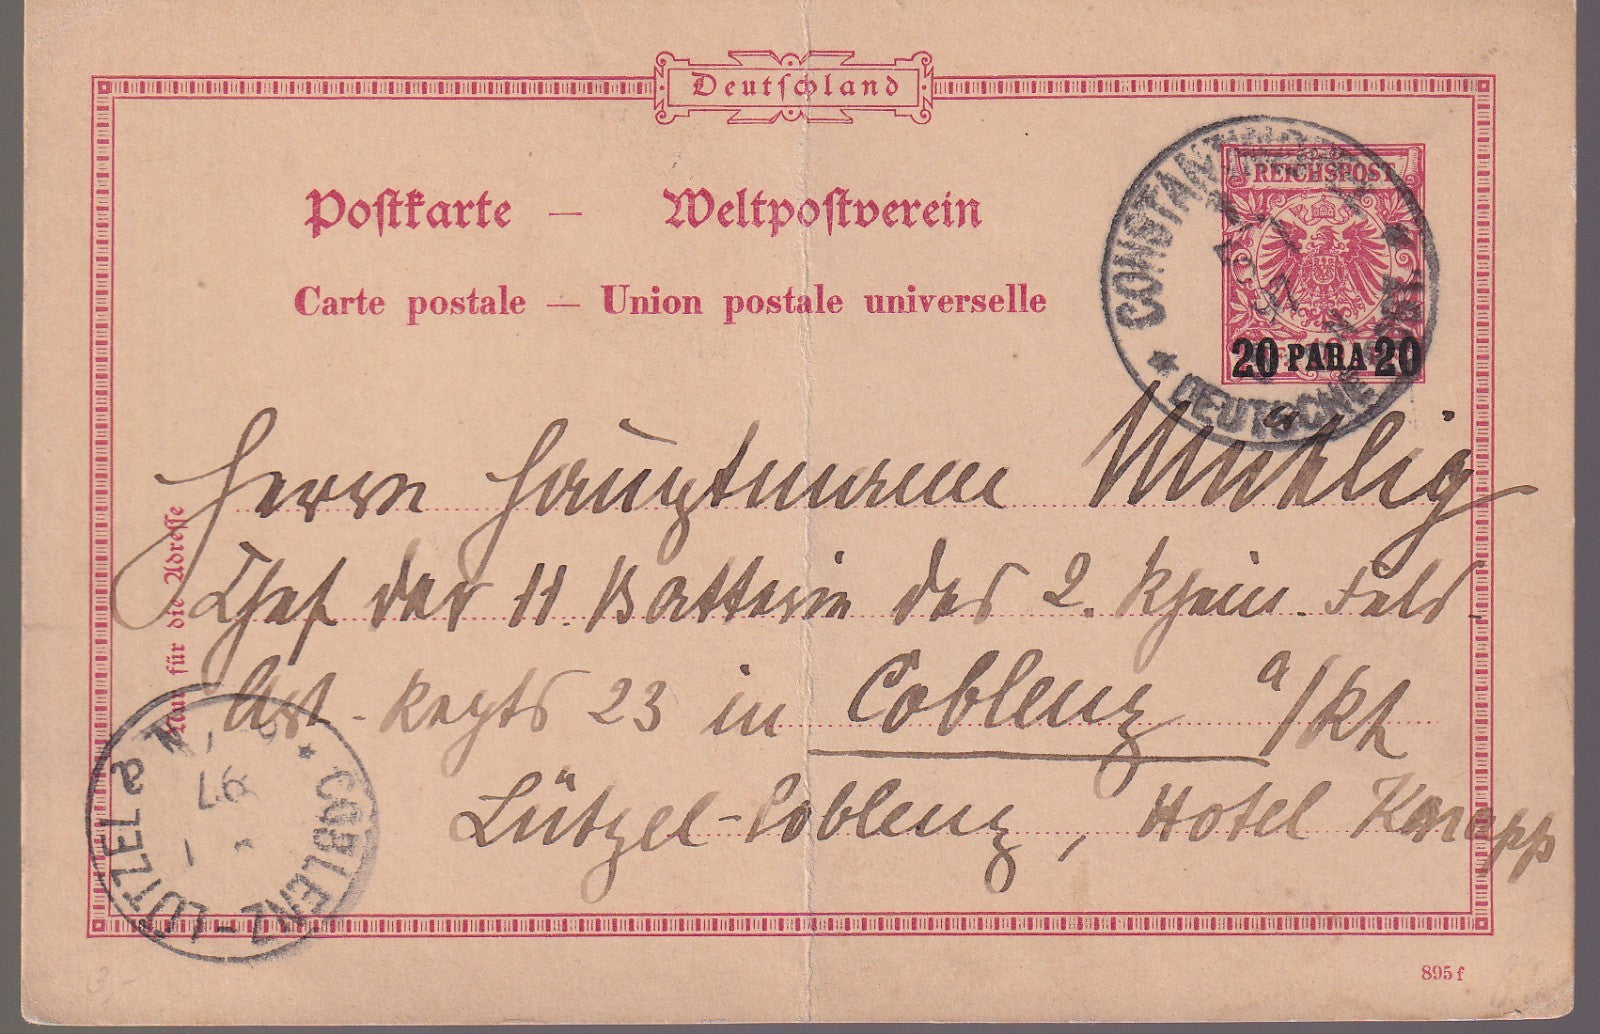 Deutschland
REICHSPOST
Postkarte — Weltpostverein
Carte postale — Union postale universelle
20 PARA 20
CONSTANTINOPEL
* DEUTSCHE POST *
Nur für die Adresse
Herrn Hauptmann
Chef der 11. Batterie des 2. Rhein. Feld
Art.-Regts 23 in Coblenz a/Rh
Lützel-Coblenz, Hotel
* COBLENZ-LÜTZEL a
97
895 f
3.-